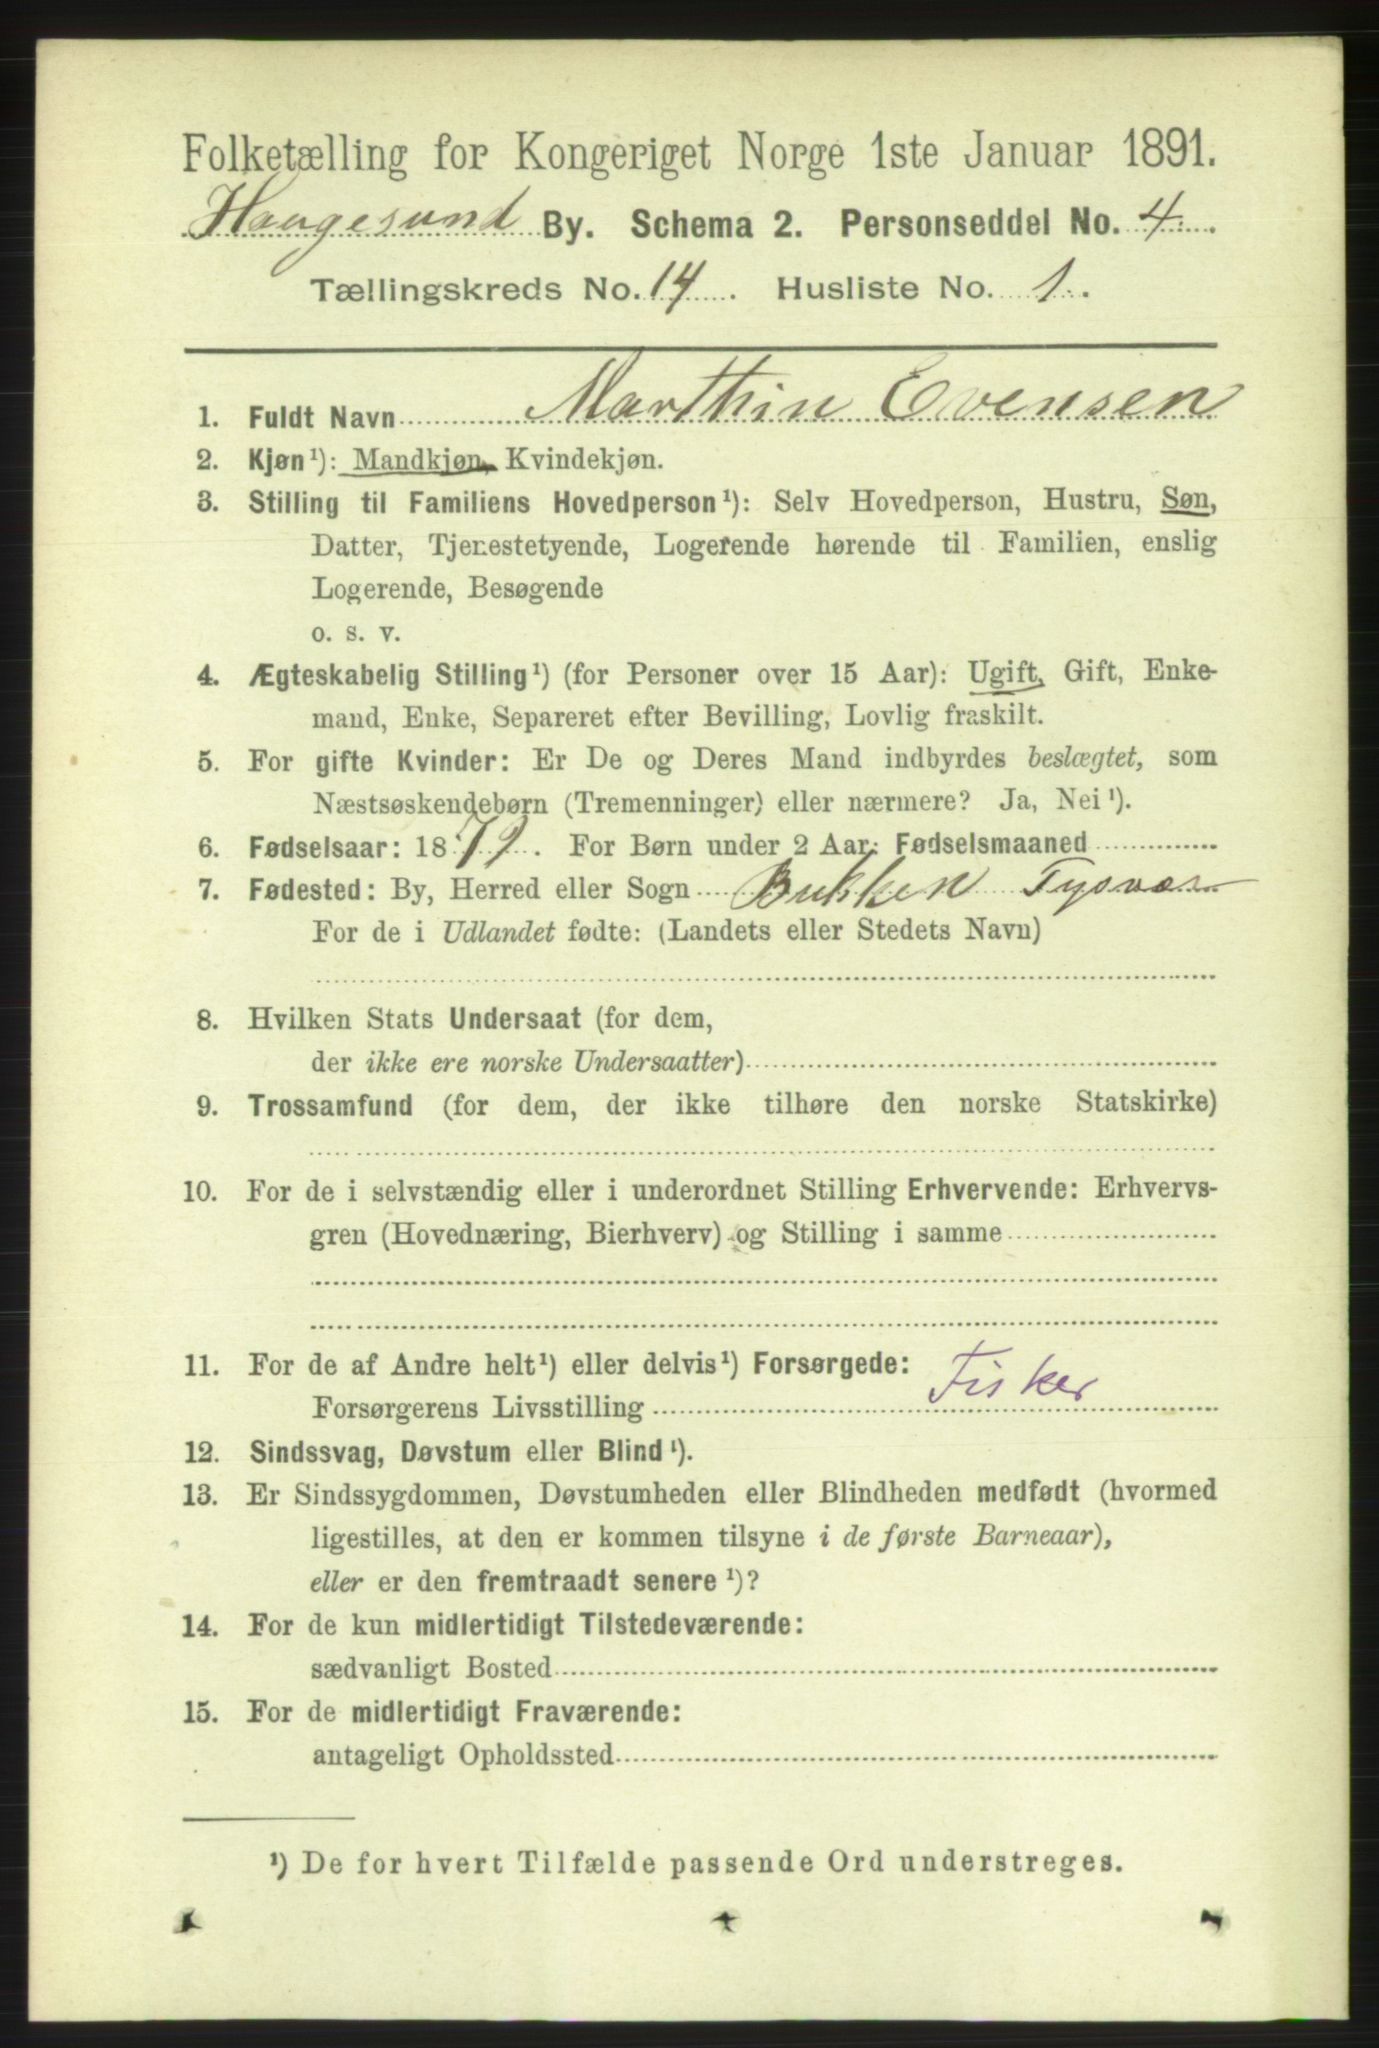 Folketælling for Kongeriget Norge 1ste Januar 1891.
Haugesund By. Schema 2. Personseddel No. 4.
Tællingskreds No. 14. Husliste No. 1.
1. Fuldt Navn Marthin Evensen
2. Kjøn¹): Mandkjøn, Kvindekjøn.
3. Stilling til Familiens Hovedperson¹): Selv Hovedperson, Hustru, Søn,
Datter, Tjenestetyende, Logerende hørende til Familien, enslig
Logerende, Besøgende
o. s. v.
4. Ægteskabelig Stilling¹) (for Personer over 15 Aar): Ugift, Gift, Enke-
mand, Enke, Separeret efter Bevilling, Lovlig fraskilt.
5. For gifte Kvinder: Er De og Deres Mand indbyrdes beslægtet, som
Næstsøskendebørn (Tremenninger) eller nærmere? Ja, Nei¹).
6. Fødselsaar: 1879. For Børn under 2 Aar: Fødselsmaaned
7. Fødested: By, Herred eller Sogn Bukken Tysvær
For de i Udlandet fødte: (Landets eller Stedets Navn)
8. Hvilken Stats Undersaat (for dem,
der ikke ere norske Undersaatter)
9. Trossamfund (for dem, der ikke tilhøre den norske Statskirke)
10. For de i selvstændig eller i underordnet Stilling Erhvervende: Erhvervs-
gren (Hovednæring, Bierhverv) og Stilling i samme
11. For de af Andre helt¹) eller delvis¹) Forsørgede:
Forsørgerens Livsstilling Fisker
12. Sindssvag, Døvstum eller Blind¹).
13. Er Sindssygdommen, Døvstumheden eller Blindheden medfødt (hvormed
ligestilles, at den er kommen tilsyne i de første Barneaar),
eller er den fremtraadt senere¹)?
14. For de kun midlertidigt Tilstedeværende:
sædvanligt Bosted
15. For de midlertidigt Fraværende:
antageligt Opholdssted
¹) De for hvert Tilfælde passende Ord understreges.